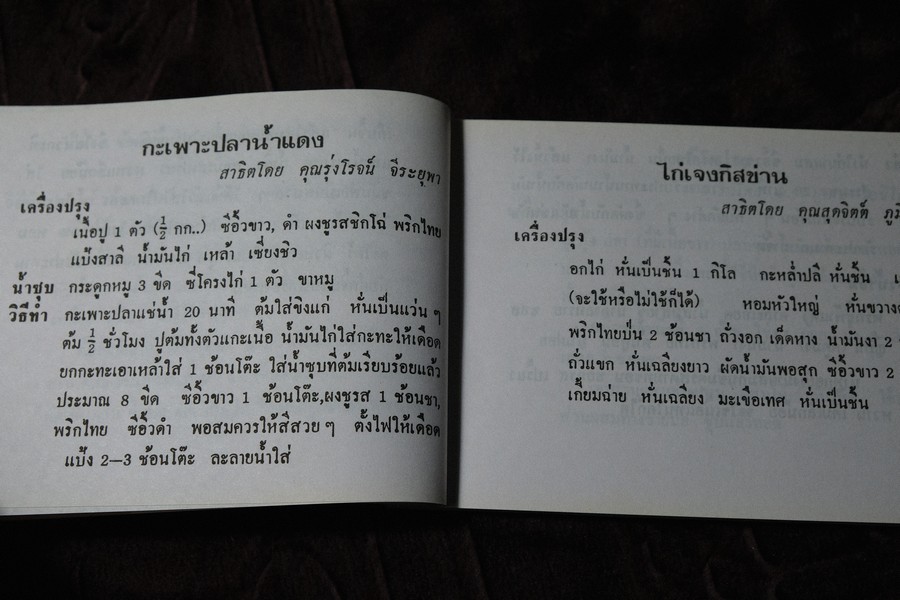 กะเพาะปลาน้ำแดง
สาธิตโดย คุณรุ่งโรจน์ จีระยุพา
เครื่องปรุง
เนื้อปู 1 ตัว (½ กก..) ซีอิ้วขาว, ดำ ผงชูรสชิกโฉ่ พริกไทย
แป้งสาลี น้ำมันไก่ เหล้า เซี่ยงชิว
น้ำซุบ กระดูกหมู 3 ขีด ซี่โครงไก่ 1 ตัว ขาหมู
วิธีทำ กะเพาะปลาแช่น้ำ 20 นาที ต้มใส่ขิงแก่ หั่นเป็นแว่น ๆ
ต้ม ½ ชั่วโมง ปูต้มทั้งตัวแกะเนื้อ น้ำมันไก่ใส่กะทะให้เดือด
ยกกะทะเอาเหล้าใส่ 1 ช้อนโต๊ะ ใส่น้ำซุบที่ต้มเรียบร้อยแล้ว
ประมาณ 8 ขีด ซีอิ้วขาว 1 ช้อนโต๊ะ,ผงชูรส 1 ช้อนชา,
พริกไทย ซีอิ้วดำ พอสมควรให้สีสวย ๆ ตั้งไฟให้เดือด
แป้ง 2—3 ช้อนโต๊ะ ละลายน้ำใส่
ไก่เจงกิสข่าน
สาธิตโดย คุณสุดจิตต์
เครื่องปรุง
อกไก่ หั่นเป็นชิ้น 1 กิโล กะหล่ำปลี หั่นชิ้น
(จะใช้หรือไม่ใช้ก็ได้) หอมหัวใหญ่ หั่นขวาง
พริกไทยป่น 2 ช้อนชา ถั่วงอก เด็ดหาง น้ำมันงา 2
ถั่วแขก หั่นเฉลียงยาว ผัดน้ำมันพอสุก ซีอิ้วขาว 2
เกี้ยมฉ่าย หั่นเฉลียง มะเขือเทศ หั่นเป็นชิ้น